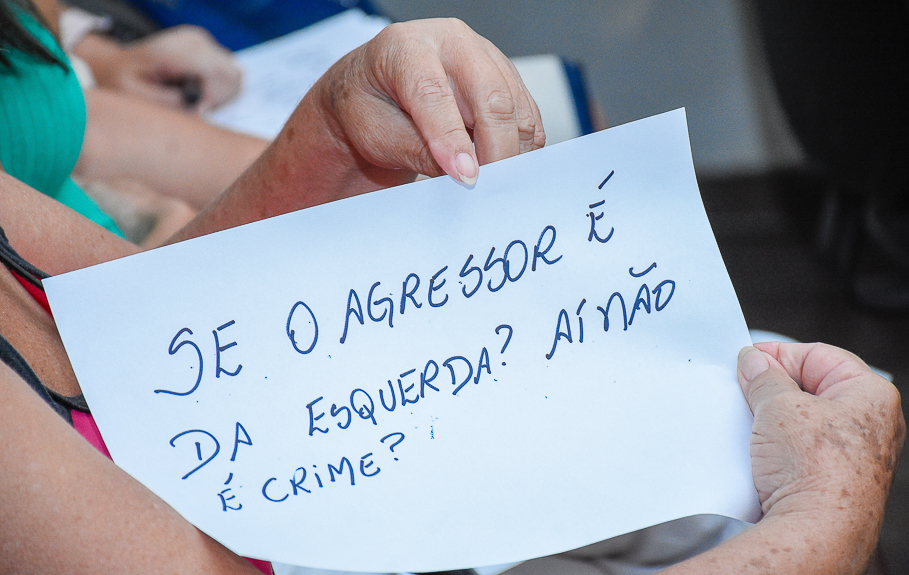 SE O AGRESSOR É
DA ESQUERDA? AÍ NÃO
É CRIME?